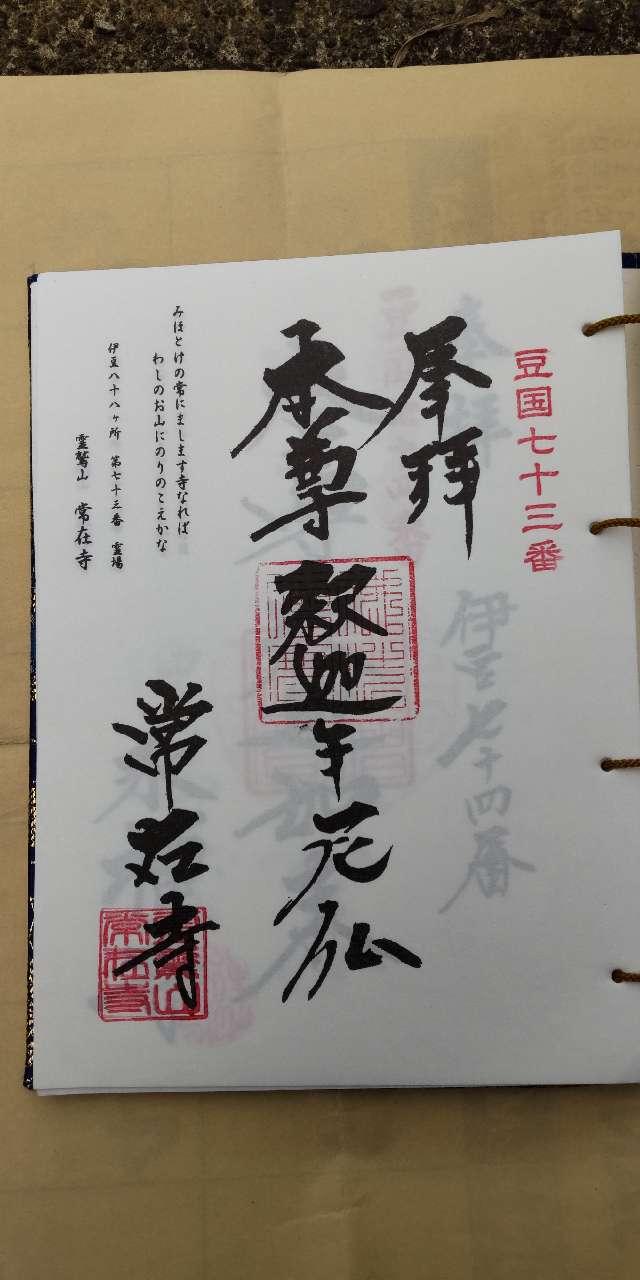 豆国七十三番
奉拝
本尊 釈迦牟尼仏
常在寺
みほとけの常にまします寺なれば
わしのお山にのりのこえかな
伊豆八十八ヶ所 第七十三番 霊場
霊鷲山 常在寺
伊豆七十四番